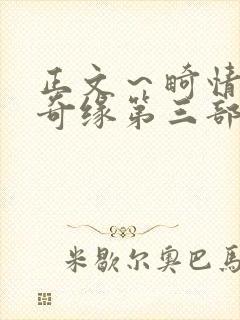 正文～畸情
奇缘第三部
米歇尔奥巴马